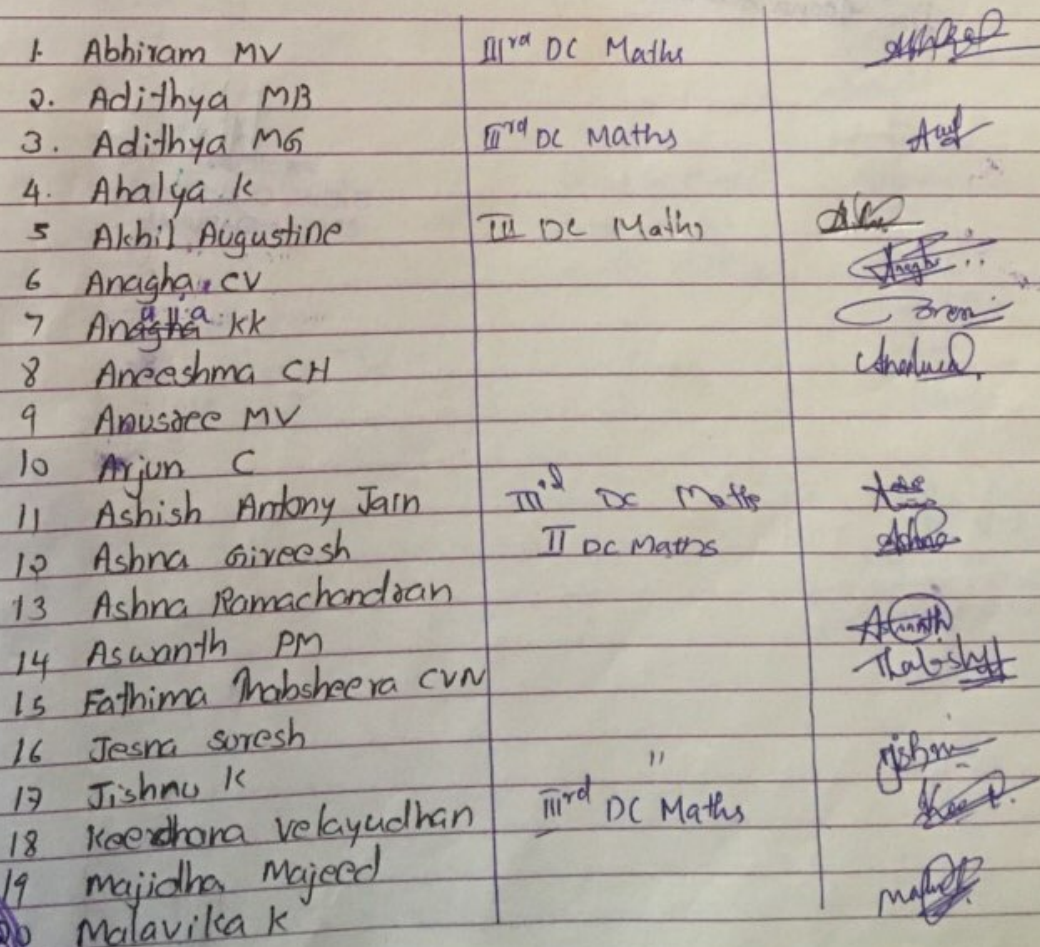 1. Abhiram MV IIIrd DC Maths
2. Adithya MB
3. Adithya MG IIIrd DC Maths
4. Ahalya K
5 Akhil Augustine III DC Maths
6 Anagha CV
7 KK
8 Aneeshma CH
9 Anusree MV
10 Arjun C
11 Ashish Antony Jain IIIrd DC Maths
12 Ashna Gireesh II DC Maths Ashna
13 Ashna Ramachandran
14 Aswanth PM Aswanth
15 Fathima Thabsheera CVN
16 Jesna Suresh
17 Jishnu K "
18 Keerdhana Velayudhan IIIrd DC Maths
19 Majidha Majeed
20 Malavika K